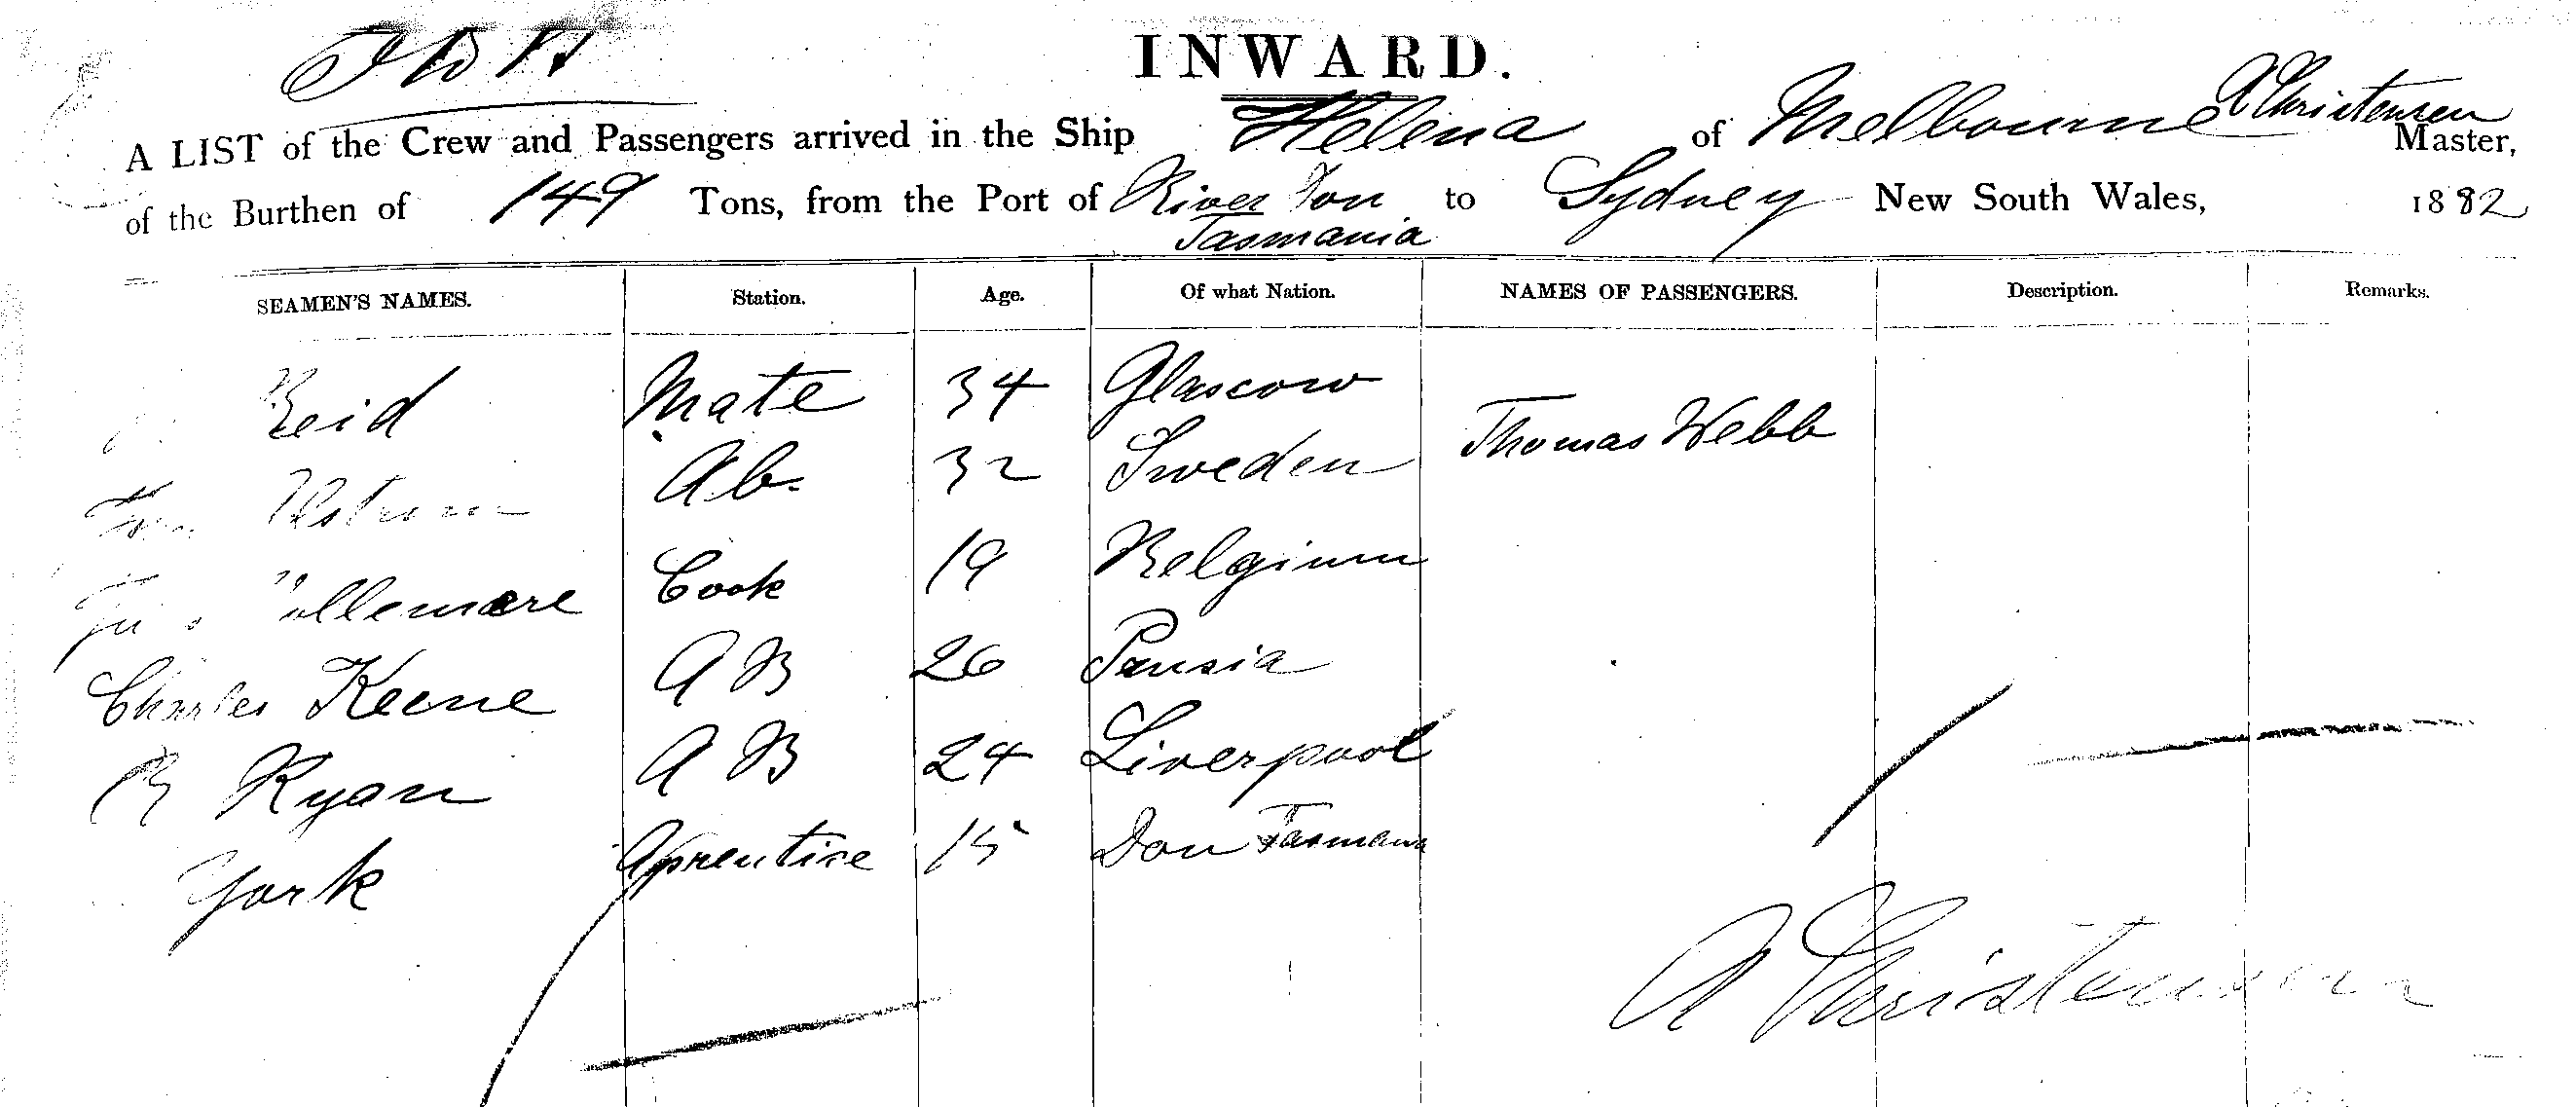 INWARD.
A LIST of the Crew and Passengers arrived in the Ship Helena of Melbourne A Christensen Master,
of the Burthen of 149 Tons, from the Port of River Don to Sydney New South Wales, 1882
Tasmania
SEAMEN'S NAMES. Station. Age. Of what Nation. NAMES OF PASSENGERS. Description. Remarks.
Reid Mate 34 Glascow
Thomas Webb
Ab. 32 Sweden
Cook 19 Belgium
Charles Keene AB 26 Prusia
Ryan AB 24 Liverpool
York Aprentice 15 Don Tasmania
A Christensen